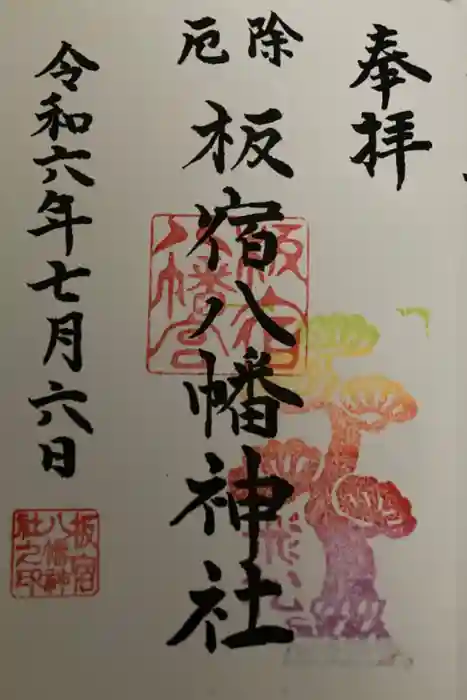 奉拝
除厄
板宿八幡神社
令和六年七月六日
板宿八幡宮
板宿八幡神社之印
飛松